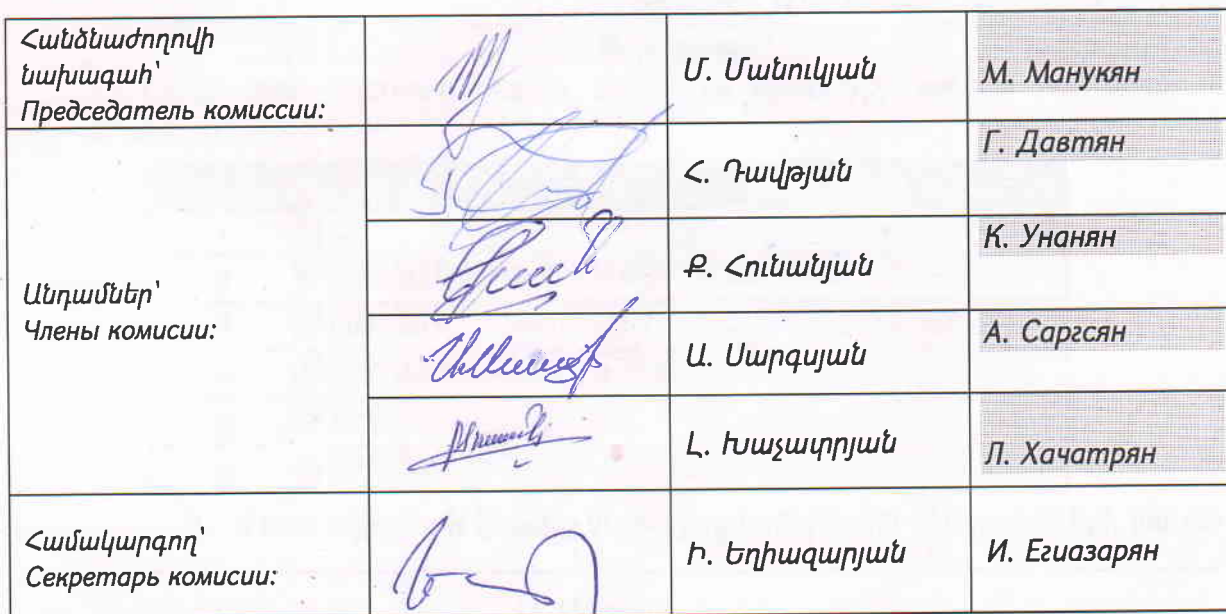 Հանձնաժողովի
նախագահ՝
Председатель комиссии:
Մ. Մանուկյան
М. Манукян
Հ. Դավթյան
Г. Давтян
Անդամներ՝
Члены комисии:
Ք. Հունանյան
К. Унанян
Ա. Սարգսյան
А. Саргсян
Լ. Խաչատրյան
Л. Хачатрян
Համակարգող՝
Секретарь комисии:
Ի. Եղիազարյան
И. Егиазарян